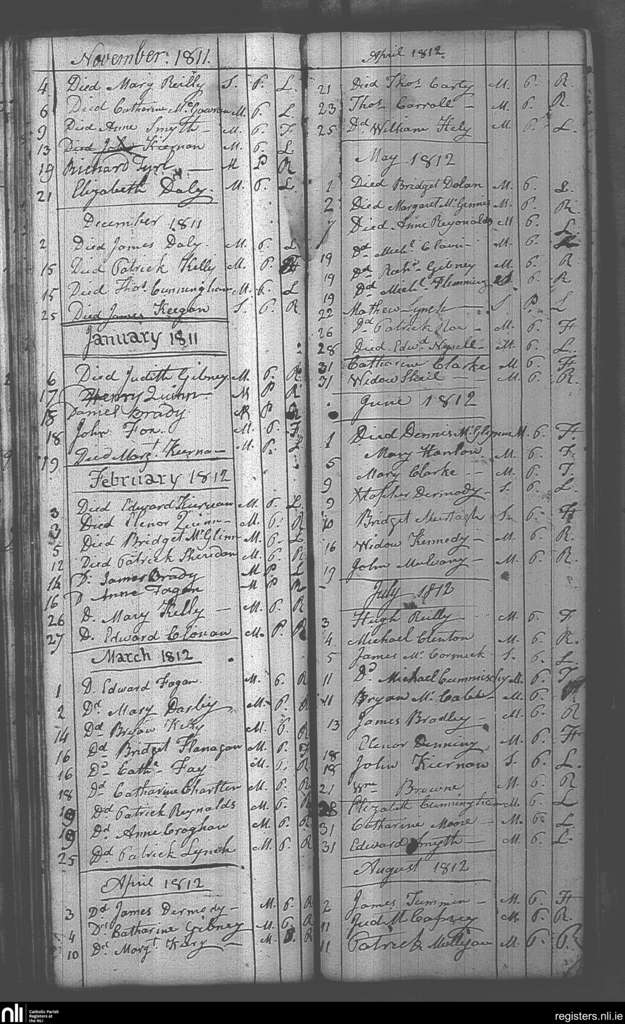 November 1811.
4 Died Mary Reilly S. P. L
6 Died Catharine McGowran M. 6. L
9 Died Anne Smyth M. 6. F
13 Died Kiernan M. 6. L
19 Richard M P R
21 Elizabeth Daly. M. 6. L
December 1811
2 Died James Daly M. 6. L
15 Died Patrick Kelly M. P. H
15 Died Thos Cunningham M. L
25 Died James Keegan S. 6. R
January 1811
6 Died Judith Gibney M. 6. R
17 Henry Quinn M P R
18 Daniel Brady M P R
18 John Fox. M. 6. F
19 Died Margt Keernan M. P. L
February 1812
3 Died Edward Kiernan M. 6. L
3 Died Elenor Quinn M. 6. R
5 Died Bridget McGlinn M. 6. L
12 Died Patrick Sheridan M. 6. R
14 D. James Brady M P L
16 D Anne Fagan M P R
26 D. Mary Kelly M. P. R
27 D. Edward Clonan M. P. R
March 1812
1 D. Edward Fagan M. 6. R
2 Dd Mary Darby M. P. R
14 Dd Bryan M. 6. R
16 Dd Bridget Flanagan M. P. F
16 Dd Cathe Fay M. P. R
18 Dd Catharine M. P. R
19 Dd Patrick Reynolds M. 6. R
19 Dd Anne Croghan M. 6. R
25 Dd Patrick Lynch M. 6. R
April 1812
3 Dd James Dermody M. 6. R
4 Dd Catharine Gibney M. 6. R
10 Dd Margt M. 6. R
April 1812.
21 Died Thos Carty M. 6. R.
23 Thos Carroll M. P. R.
25 Dd William Kely M. P. L.
May 1812
1 Died Bridget Dolan M. 6. L.
2 Died Margaret McGennis M. 6. R.
7 Died Anne Reynolds M. 6. R.
19 Dd Michl M. 6. L
19 Dd Gibney M. 6. R
19 Dd Michl Flemming 6. R.
22 Mathew Lynch S. P. L
26 Dd Patrick M. 6. H
28 Died Edwd Newell M. 6. L.
31 Catharine Clarke M. 6. F
31 Widow Sheil M. 6. R.
June 1812
1 Died Dennis McGlynn M. 6. F.
5 Mary Hanlon M. 6. F.
9 Mary Clarke M. 6. F.
9 Xtopher Dermody S. 6. L.
10 Bridget Murtagh S. 6. H
16 Widow Kennedy M. 6. R.
19 John Mulvany M. 6. R.
July 1812
3 Hugh Reilly M. 6. F
4 Michael Clinton M. 6. R.
5 James McCormick S. 6. L
11 Dd Michael Cummiskey M. 6. F
11 Bryan McCabe M. 6. H
13 James Bradley M. 6. R
Elenor Denning M. 6. H
18 John Kiernan S. 6. L.
21 Wm Browne M. 6. R
28 Elizabeth Cunningham M. 6. L
31 Catharine Moore M. 6. L
31 Edward Smyth M. 6. L.
August 1812
2 James Tummin M. 6. H
11 Judith M. 6. R.
11 Patrick Mulligan M. 6. R.
nli
Catholic Parish
Registers at
the NLI
registers.nli.ie